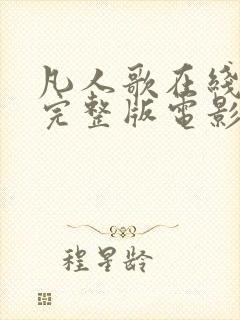 凡人歌在綫
完整版電影
程星龄